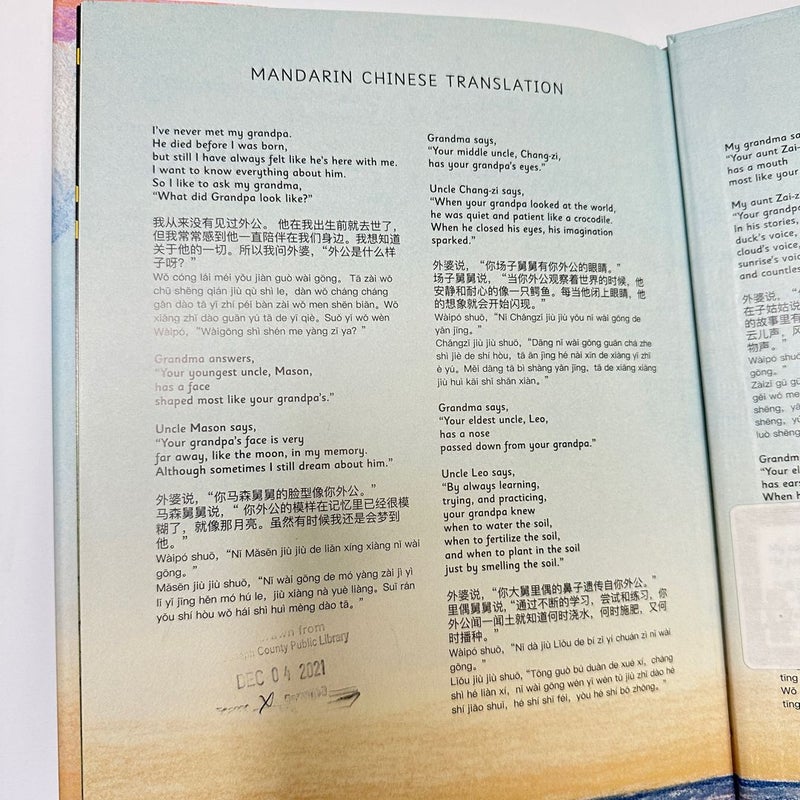 MANDARIN CHINESE TRANSLATION
I've never met my grandpa.
He died before I was born,
but still I have always felt like he's here with me.
I want to know everything about him.
So I like to ask my grandma,
“What did Grandpa look like?”
我从来没有见过外公。 他在我出生前就去世了，
但我常常感到他一直陪伴在我们身边。我想知道
关于他的一切。所以我问外婆，“外公是什么样
子呀？”
Wǒ cóng lái méi yǒu jiàn guò wài gōng。 Tā zài wǒ
chū shēng qián jiù qù shì le， dàn wǒ cháng cháng
gǎn dào tā yī zhí péi bàn zài wǒ men shēn biān。Wǒ
xiǎng zhī dào guān yú tā de yī qiè。Suǒ yǐ wǒ wèn
Wàipó，“Wàigōng shì shén me yàng zi ya？”
Grandma answers,
“Your youngest uncle, Mason,
has a face
shaped most like your grandpa's.”
Uncle Mason says,
“Your grandpa's face is very
far away, like the moon, in my memory.
Although sometimes I still dream about him.”
外婆说，“你马森舅舅的脸型像你外公。”
马森舅舅说，“ 你外公的模样在记忆里已经很模
糊了，就像那月亮。虽然有时候我还是会梦到
他。”
Wàipó shuō，“Nǐ Mǎsēn jiù jiù de liǎn xíng xiàng nǐ wài
gōng。”
Mǎsēn jiù jiù shuō，“Nǐ wài gōng de mó yàng zài jì yì
lǐ yǐ jīng hěn mó hú le, jiù xiàng nà yuè liàng。Suī rán
yǒu shí hòu wǒ hái shì huì mèng dào tā。”
from
County Public Library
DEC 04 2021
Grandma says,
“Your middle uncle, Chang-zi,
has your grandpa's eyes.”
Uncle Chang-zi says,
“When your grandpa looked at the world,
he was quiet and patient like a crocodile.
When he closed his eyes, his imagination
sparked.”
外婆说，“你场子舅舅有你外公的眼睛。”
场子舅舅说，“当你外公观察着世界的时候，他
安静和耐心的像一只鳄鱼。每当他闭上眼睛，他
的想象就会开始闪现。”
Wàipó shuō，“Nǐ Chǎngzi jiù jiù yǒu nǐ wài gōng de
yǎn jīng。”
Chǎngzi jiù jiù shuō，“Dāng nǐ wài gōng guān chá zhe
shì jiè de shí hòu, tā ān jìng hé nài xīn de xiàng yī zhī
è yú。Měi dāng tā bì shàng yǎn jīng，tā de xiǎng xiàng
jiù huì kāi shǐ shǎn xiàn。”
Grandma says,
“Your eldest uncle, Leo,
has a nose
passed down from your grandpa.”
Uncle Leo says,
“By always learning,
trying, and practicing,
your grandpa knew
when to water the soil,
when to fertilize the soil,
and when to plant in the soil
just by smelling the soil.”
外婆说，“你大舅里偶的鼻子遗传自你外公。”
里偶舅舅说，“通过不断的学习，尝试和练习，你
外公闻一闻土就知道何时浇水，何时施肥，又何
时播种。”
Wàipó shuō，“Nǐ dà jiù Lǐǒu de bí zi yí chuán zì nǐ wài
gōng。”
Lǐǒu jiù jiù shuō，“Tōng guò bú duàn de xué xí，cháng
shì hé liàn xí，nǐ wài gōng wén yì wén tǔ jiù zhī dào hé
shí jiāo shuǐ，hé shí shī féi，yòu hé shí bō zhǒng。”
My grandma sa
“Your aunt Zai-
has a mouth
most like your
My aunt Zai-z
“Your grandp
In his stories,
duck's voice,
cloud's voice,
sunrise's voice
and countles
外婆说，“
在子姑姑说
的故事里有
云儿声，风
物声。”
Wàipó shuō
gōng。”
Zàizǐ gū g
gěi wǒ me
shēng，yā
shēng，yú
luò shēng
Grandm
“Your el
has ears
When h
ting
Wǒ
ting